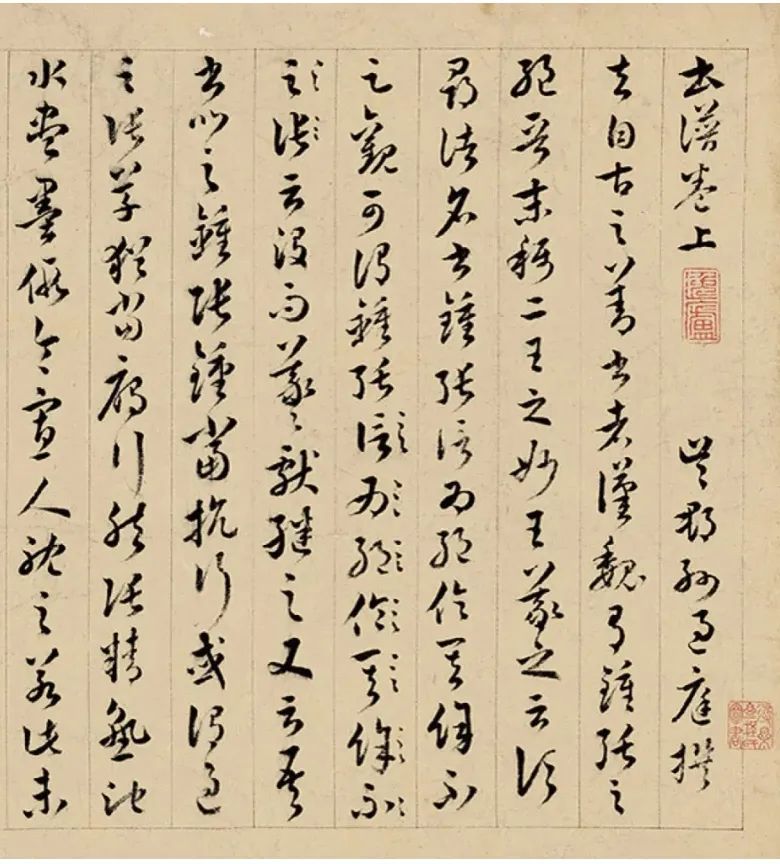 書譜卷上 吳郡孫過庭撰
夫自古之善書者漢魏有鍾張之
絕晉末稱二王之妙王羲之云頃
尋諸名書鍾張信為絕倫其餘不
足觀可謂鍾張信為絕倫其餘不
足觀云沒而羲獻繼之又云吾
書比之鍾張鍾當抗行或謂過
之張草猶當鴈行然張精熟池
水盡墨假令寡人耽之若此未